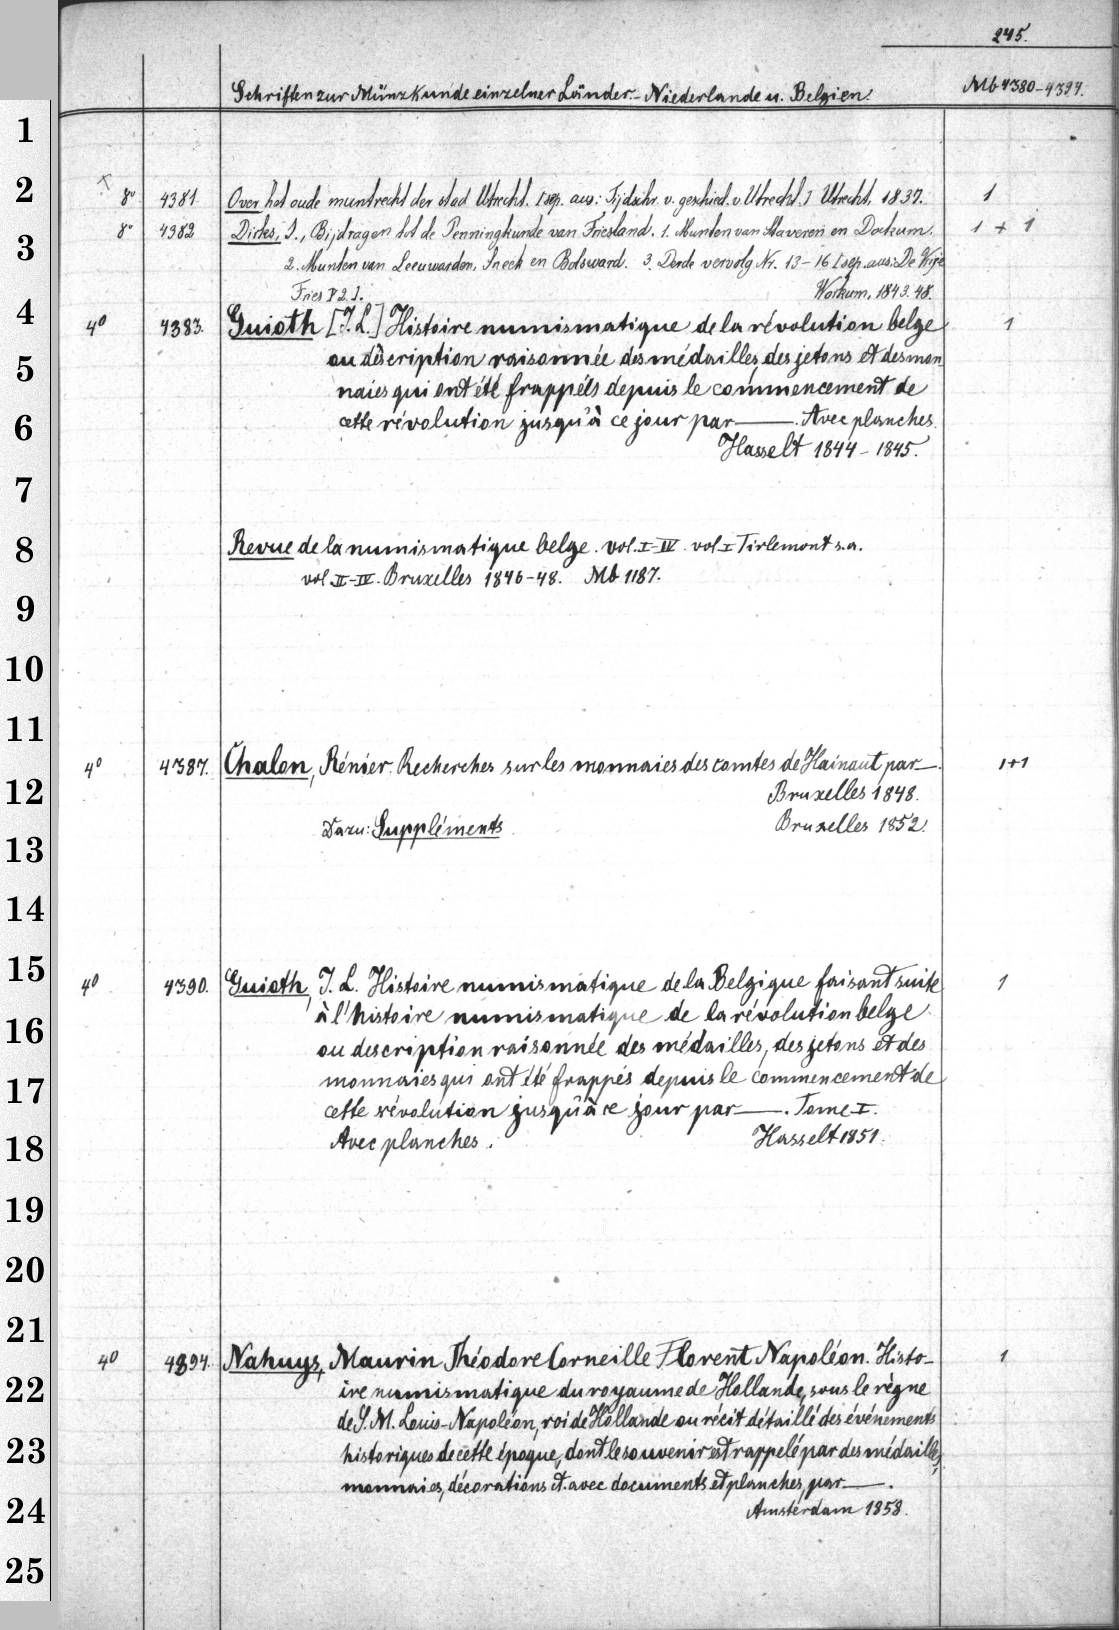 245.
Schriften zur Münzkunde einzelner Länder.- Niederlande u. Belgien. Mb 4380-4394.
1
2
3
4
5
6
7
8
9
10
11
12
13
14
15
16
17
18
19
20
21
22
23
24
25
8° 4381 Over het oude muntrecht der stad Utrecht. [sep. aus: Tijdschr. v. geschied. v. Utrecht.] Utrecht, 1837. 1
8° 4382 Dirks, J., Bijdragen tot de Penningkunde van Friesland. 1. Munten van Staveren en Dockum. 1 + 1
2. Munten van Leeuwarden, Sneek en Bolsward. 3. Derde vervolg Nr. 13-16 [sep. aus: De Vrije
Fries V 2]. Workum, 1843. 48.
4° 4383. Guioth [J. L.] Histoire numismatique de la révolution belge 1
ou déscription raisonnée des médailles, des jetons et des mon
naies qui ont été frappéls depuis le commencement de
cette révolution jusqu'à ce jour par ——. Avec planches.
Hasselt 1844 - 1845.
Revue de la numismatique belge. vol. I-IV. vol I Tirlemont s.a.
vol. II-IV. Bruxelles 1846-48. Mb 1187.
4° 4387. Chalon, Rénier. Recherches sur les monnaies des comtes de Hainaut par —. 1+1
Bruxelles 1848.
Dazu: Suppléments Bruxelles 1852.
4° 4390. Guioth, J. L. Histoire numismatique de la Belgique faisant suite 1
à l'histoire numismatique de la révolution belge
ou description raisonnée des médailles, des jetons et des
monnaies qui ont été frappés depuis le commencement de
cette révolution jusqu'à ce jour par ——. Tome I.
Avec planches. Hasselt 1851.
4° 4394. Nahuys, Maurin Théodore Corneille Florent Napoléon. Histo- 1
ire numismatique du royaume de Hollande, sous le règne
de S. M. Louis-Napoléon, roi de Hollande ou récit détaillé des événements
historiques de cette époque, dont le souvenir est rappelé par des médailles,
monnaies, décorations et. avec documents et planches, par ——.
Amsterdam 1858.